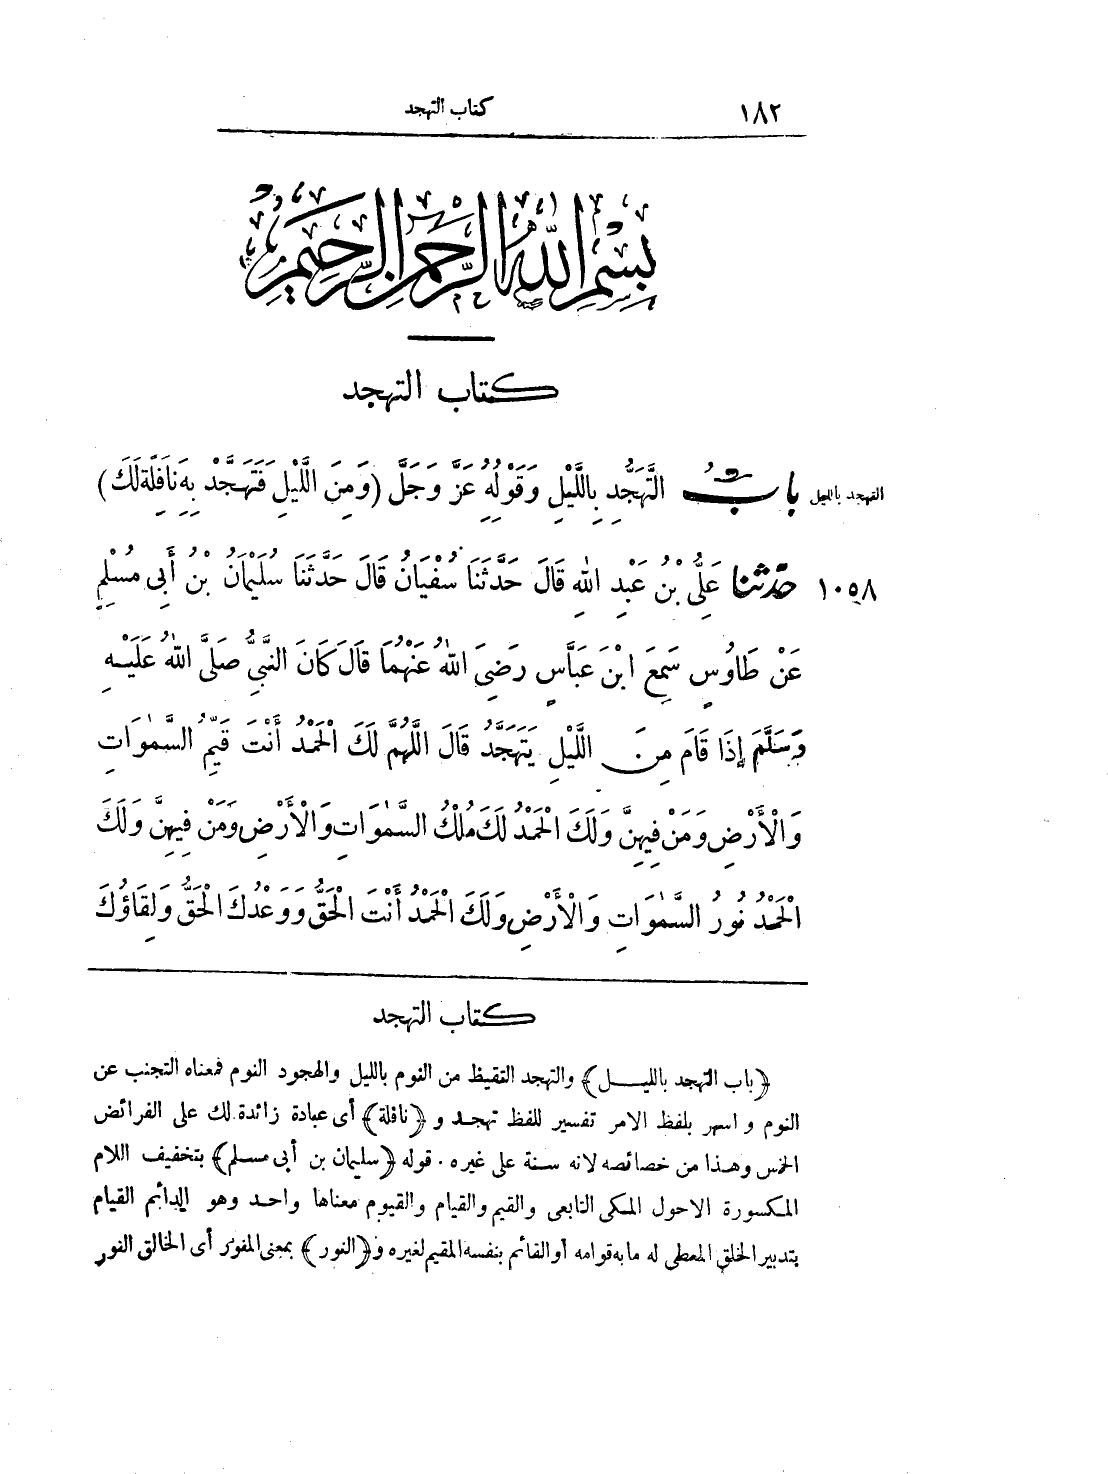 ١٨٢ كتاب التهجد
بسم الله الرحمن الرحيم
كتاب التهجد
التهجد بالليل
بَابُ التَّهَجُّدِ بِاللَّيْلِ وَقَوْلُهُ عَزَّ وَجَلَّ (وَمِنَ اللَّيْلِ فَتَهَجَّدْ بِهِ نَافِلَةً لَكَ)
١٠٥٨ حَدَّثَنَا عَلِيُّ بْنُ عَبْدِ اللهِ قَالَ حَدَّثَنَا سُفْيَانُ قَالَ حَدَّثَنَا سُلَيْمَانُ بْنُ أَبِى مُسْلِمٍ
عَنْ طَاوُسٍ سَمِعَ ابْنَ عَبَّاسٍ رَضِىَ اللهُ عَنْهُمَا قَالَ كَانَ النَّبِيُّ صَلَّى اللهُ عَلَيْهِ
وَسَلَّمَ إِذَا قَامَ مِنَ اللَّيْلِ يَتَهَجَّدُ قَالَ اللَّهُمَّ لَكَ الْحَمْدُ أَنْتَ قَيِّمُ السَّمٰوَاتِ
وَالْأَرْضِ وَمَنْ فِيهِنَّ وَلَكَ الْحَمْدُ لَكَ مُلْكُ السَّمٰوَاتِ وَالْأَرْضِ وَمَنْ فِيهِنَّ وَلَكَ
الْحَمْدُ نُورُ السَّمٰوَاتِ وَالْأَرْضِ وَلَكَ الْحَمْدُ أَنْتَ الْحَقُّ وَوَعْدُكَ الْحَقُّ وَلِقَاؤُكَ
كتاب التهجد
﴿باب التهجد بالليل﴾ والتهجد التيقظ من النوم بالليل والهجود النوم فمعناه التجنب عن
النوم و اسهر بلفظ الامر تفسير للفظ تهجد و ﴿نافلة﴾ أى عبادة زائدة لك على الفرائض
الخمس وهذا من خصائصه لانه سنة على غيره . قوله ﴿سليمان بن أبى مسلم﴾ بتخفيف اللام
المكسورة الاحول المكى التابعى والقيم والقيام والقيوم معناها واحد وهو الدائم القيام
بتدبير الخلق المعطى له ما به قوامه أو القائم بنفسه المقيم لغيره و ﴿النور﴾ بمعنى المنور أى الخالق النور